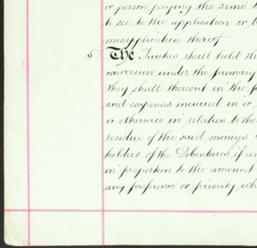 or person paying the same
to see to the application or
misapplication thereof
5 The Trustees shall hold the
conversion under the primary
they shall thereout in the
and expenses incurred in or
or otherwise in relation to the
residue of the said moneys
holders of the Debentures if an
in proportion to the amount
any preference or priority wh